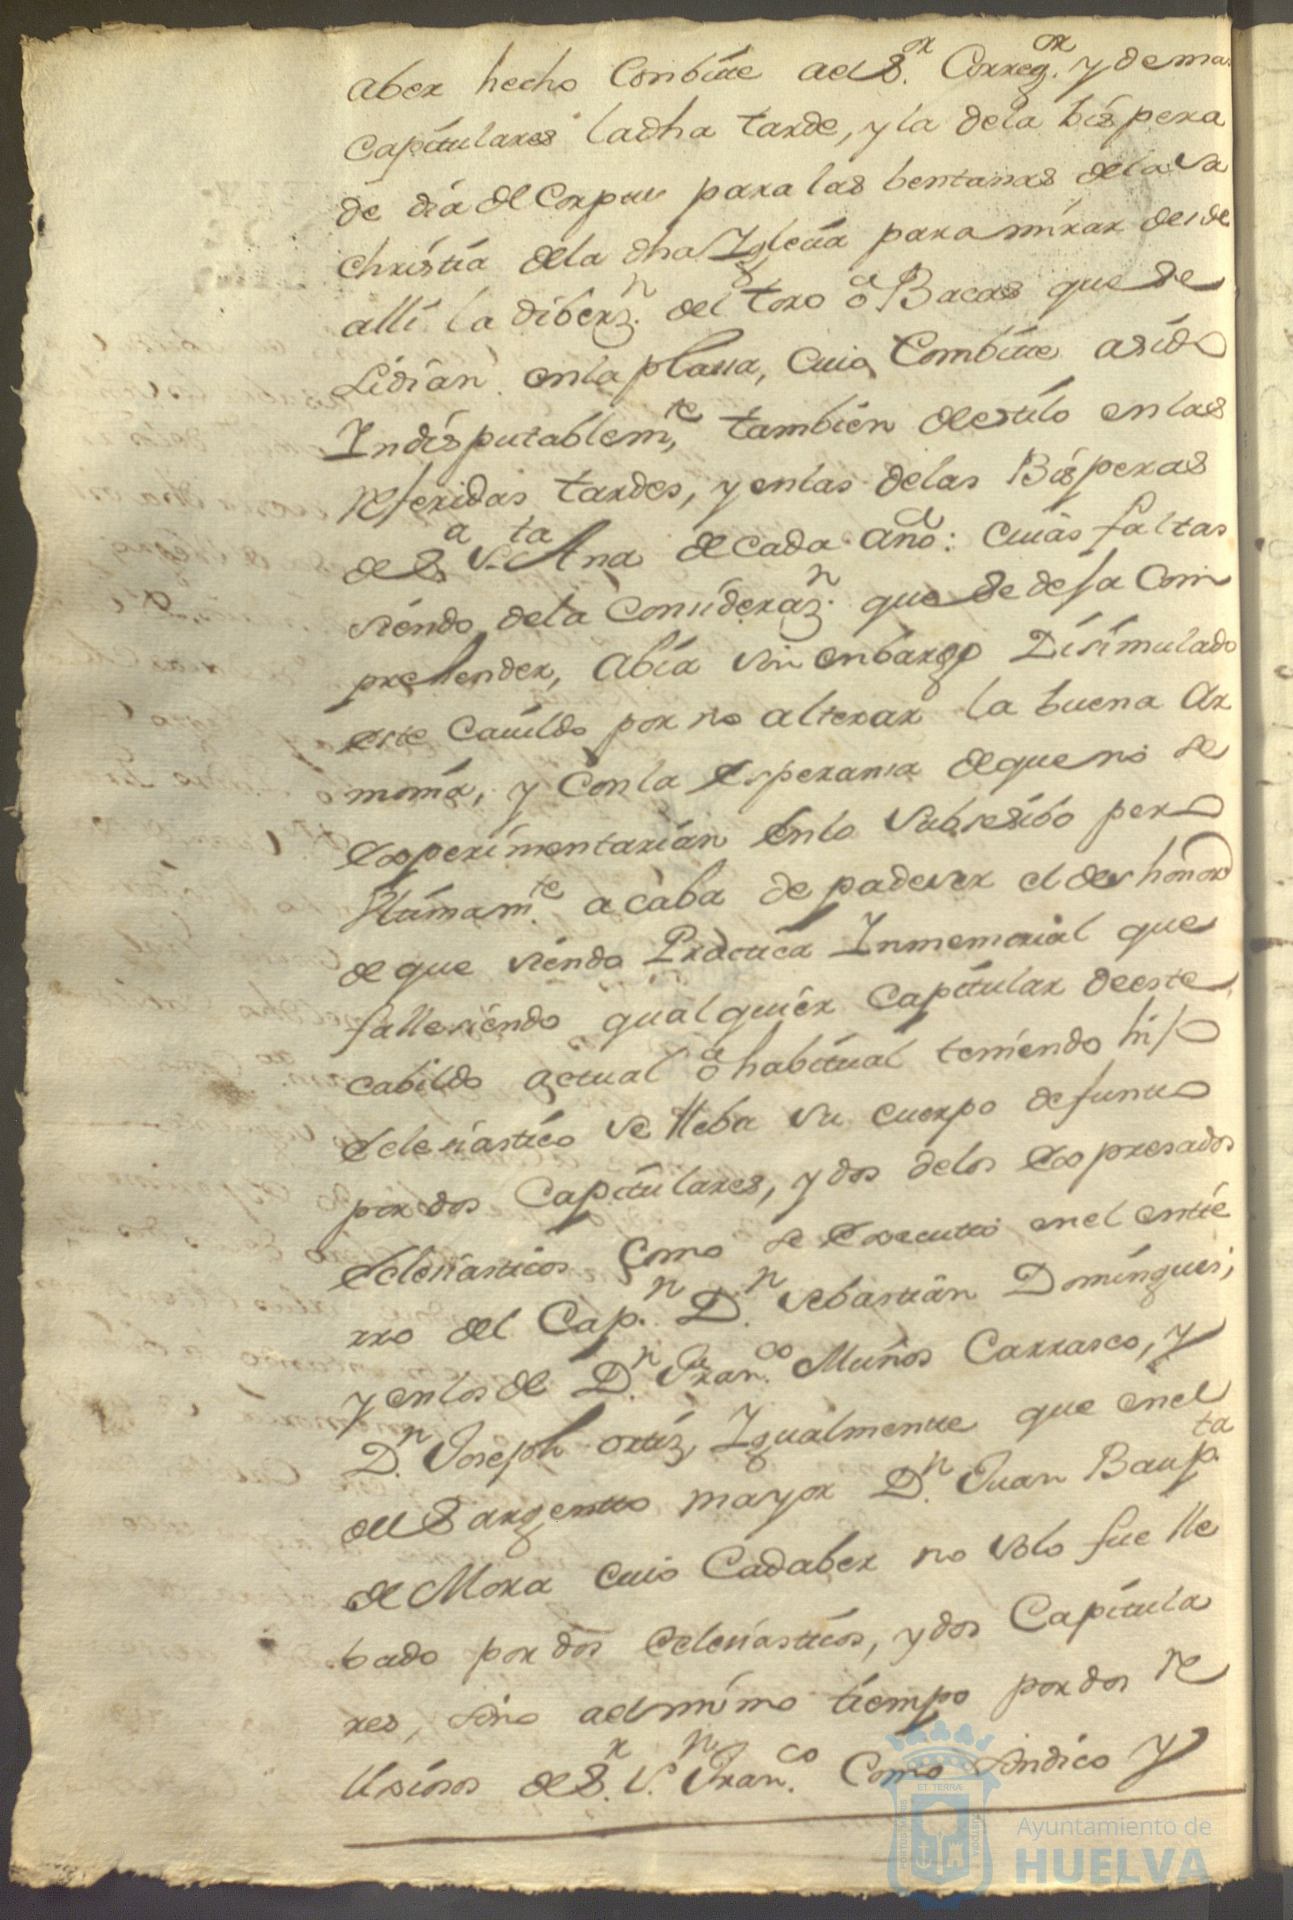 aber hecho Conbite al S.or Correg.or y demas
Capitulares la dha tarde, y la de la bispera
de dia del Corpus para las bentanas de la sa
christia de la dha Iglecia para mirar desde
alli la diberz.n del toro ó Bacas que se
Lidian en la plasa, Cuio Combite a sido
Indisputablem.te tambien de estilo en las
referidas tardes, y en las de las Bisperas
de S.a S.ta Ana de cada año: Cuias faltas
siendo de la Consideraz.n que se deja Com
prehender, Abia sin enbargo Disimulado
este Cauildo por no alterar la buena Ar
monia, y Con la Esperansa de que no se
Experimentarian En lo Subsesibo pero
Ultimam.te acaba de padeser el deshonor
de que siendo Practica Inmemorial que
fallesiendo qualquier Capitular de este
cabildo actual ó habitual teniendo hijo
Eclesiastico se lleba su cuerpo defunto
por dos Capitulares, y dos de los Expresados
Eclesiasticos Como se Executó en el entie
rro del Cap.n D.n Sebastian Domingues,
y en los de D.n Fran.co Muños Carrasco, y
D.n Joseph ortiz, Igualmente que en el
del Sargento mayor D.n Juan Baup.ta
de Mora Cuio Cadaber no solo fue lle
bado por dos Eclesiasticos, y dos Capitula
res, sino al mismo tiempo por dos re
lixiosos de S.r S.n Fran.co Como Sindico y
ET TERRÆ
PORTUS MARIS
CUSTODIA
Ayuntamiento de
HUELVA